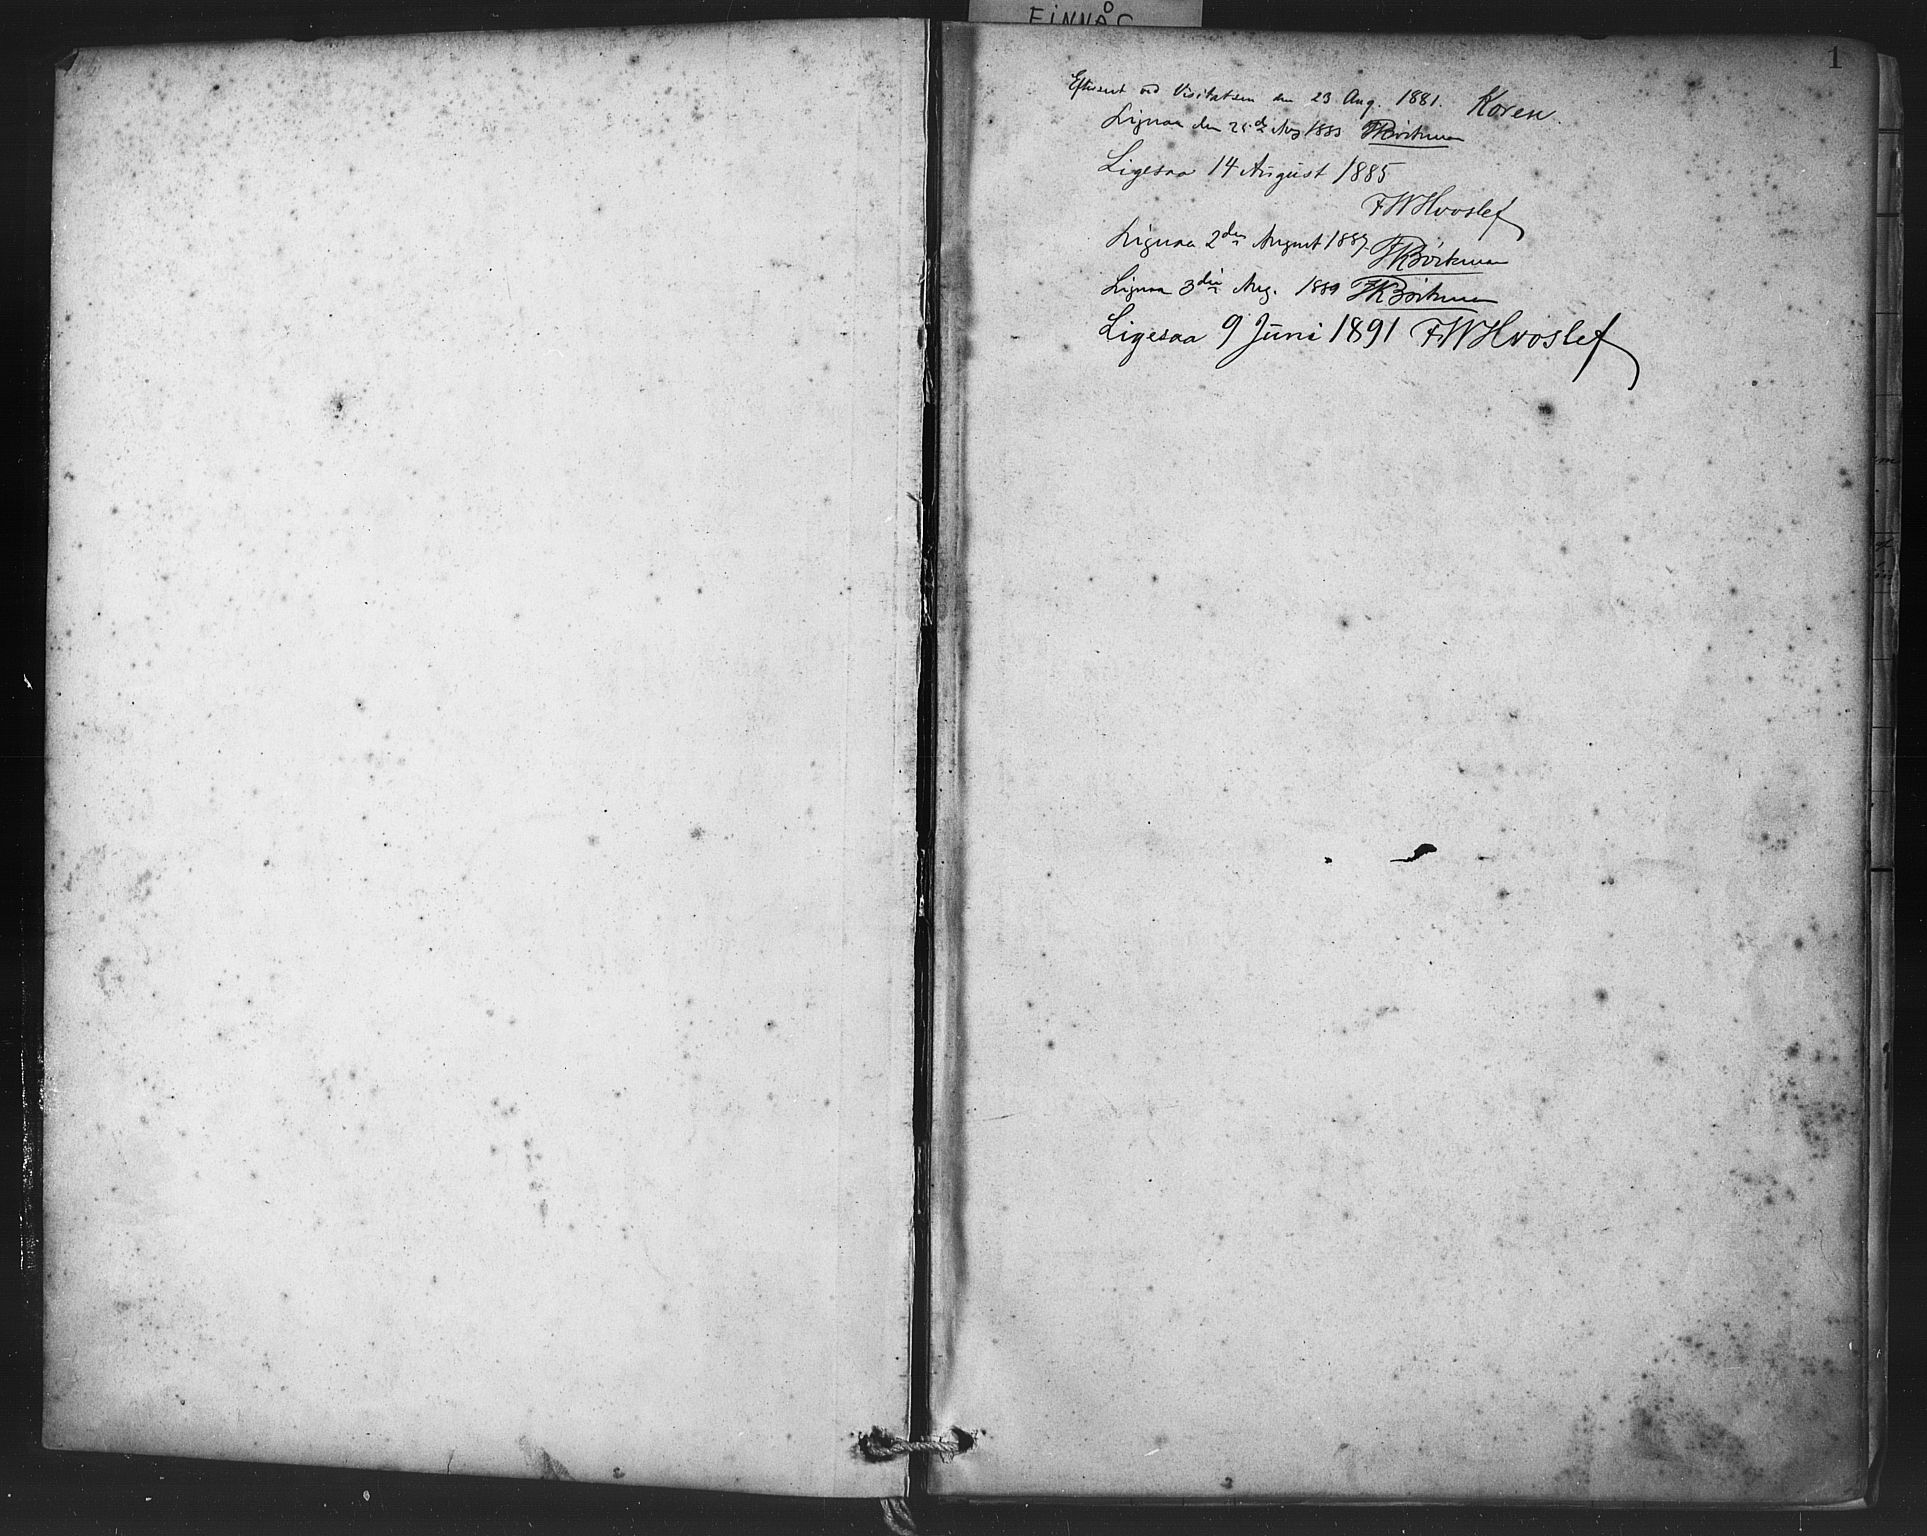 FINNÅS
1
Efterseet ved Visitatsen den 23 Aug. 1881. Koren.
Ligesaa den 25de Aug 1883
Ligesaa 14 August 1885
FWHvoslef
Ligesaa 2den August 1887
Ligesaa 3die Aug. 1889
Ligesaa 9 Juni 1891 FWHvoslef